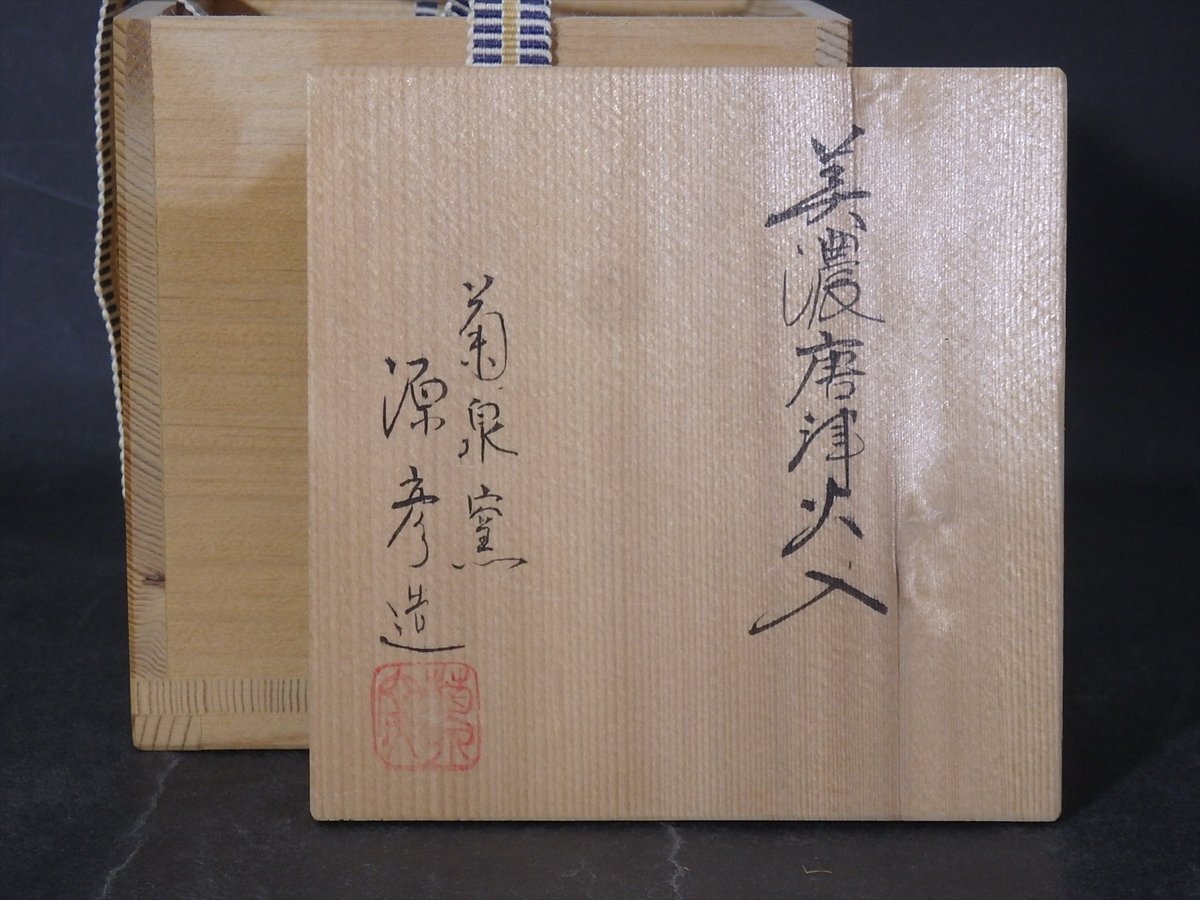 美濃唐津火入
菊泉窯
源彦造